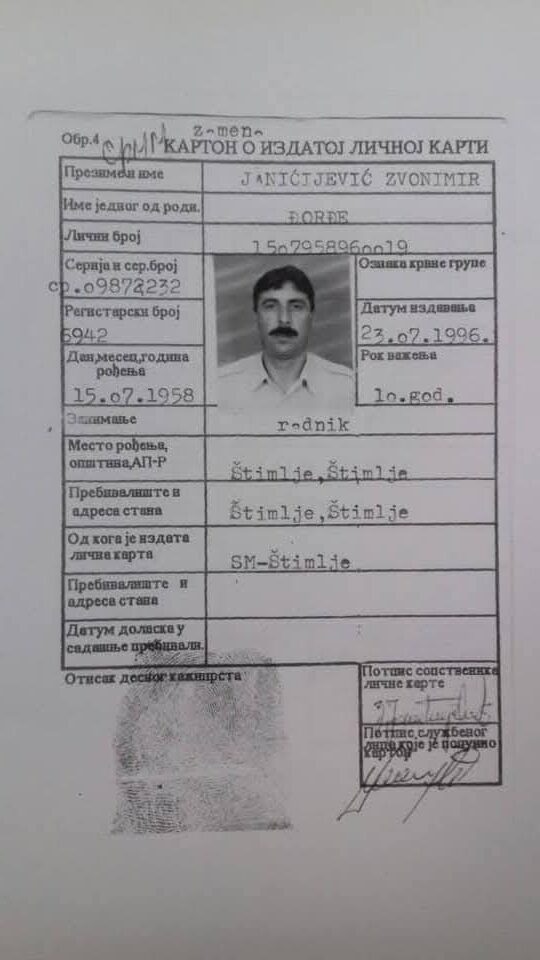 Обр.4
zamena
КАРТОН О ИЗДАТОЈ ЛИЧНОЈ КАРТИ
Презиме и име
JANIĆIJEVIĆ ZVONIMIR
Име једног од роди.
ĐORĐE
Лични број
1507958960019
Серија и сер.број
ср.09872232
Ознака крвне групе
Регистарски број
6942
Датум издавања
23.07.1996.
Дан,месец,година
рођења
15.07.1958
Рок важења
10.god.
Занимање
radnik
Место рођења,
општина,АП-Р
Štimlje,Štimlje
Пребивалиште и
адреса стана
Štimlje,Štimlje
Од кога је издата
лична карта
SM-Štimlje
Пребивалиште и
адреса стана
Датум доласка у
садашње пребивали.
Отисак десног кажипрста
Потпис сопственика
личне карте
Потпис службеног
лица које је попунио
картон